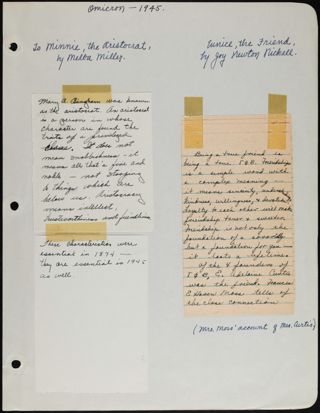 Omicron — 1945.
To Minnie, the Aristocrat,
by Melba Miller.
Mary A. Bingham was known
as the aristocrat. An aristocrat
is a person in whose
character are found the
traits of a privileged
classes. It does not
mean snobbishness - it
means all that is fine and
noble - not stooping
to things which are
below us. Aristocracy
means intellect
trustworthiness and friendliness
These characteristics were
essential in 1874 —
They are essential in 1945
as well.
Eunice, the Friend,
by Joy Newton Pickell.
Being a true friend is
being a true D&B. Friendship
is a simple word with
a complex meaning —
it means sincerity,
kindness, willingness, &
loyalty to each other will make
friendship truer & sweeter
Friendship is not only the
foundation of a sorority
but a foundation for you —
it lasts a lifetime.
Of the 4 founders of
E. Adelaine Curtis
was the friend. Frances
E. Haven Moss tells of
the close connection
(Mrs. Moss' account of Mrs. Curtis)